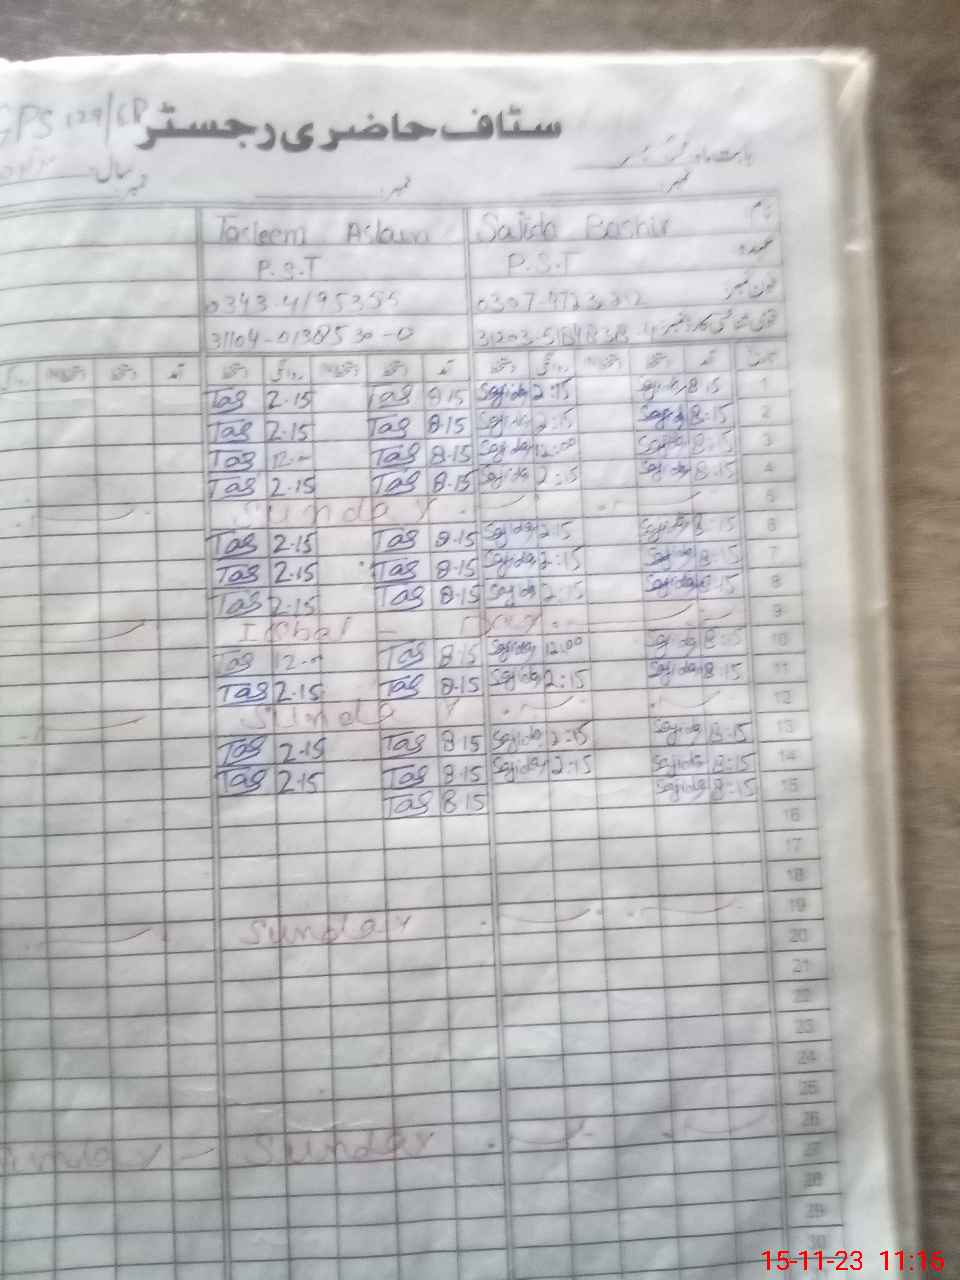 GPS 129/6R ستاف حاضری رجسٹر
سال
نمبر نمبر نمبر
Tasleem Aslam Sajida Bashir نام
P.S.T P.S.T عہدہ
0343-4195355 فون نمبر
31104-0138530-0
دستخط روانگی دستخط آمد دستخط روانگی دستخط آمد تاریخ
Tas 2.15 Tas 8.15 Sajida 2:15 Sajida 8:15 1
Tas 2.15 Tas 8.15 Sajida 2:15 Sajida 8:15 2
Tas 12.00 Tas 8.15 Sajida 12:00 Sajida 8:15 3
Tas 2.15 Tas 8.15 Sajida 2:15 Sajida 8:15 4
Sunday 5
Tas 2.15 Tas 8.15 Sajida 2:15 Sajida 8:15 6
Tas 2.15 Tas 8.15 Sajida 2:15 Sajida 8:15 7
Tas 2.15 Tas 8.15 Sajida 2:15 Sajida 8:15 8
Iqbal Day 9
Tas 12.00 Tas 8.15 Sajida 12:00 Sajida 8:15 10
Tas 2.15 Tas 8.15 Sajida 2:15 Sajida 8:15 11
Sunday 12
Tas 2.15 Tas 8.15 Sajida 2:15 Sajida 8:15 13
Tas 2.15 Tas 8.15 Sajida 2:15 Sajida 8:15 14
Tas 8.15 Sajida 8:15 15
16
17
18
Sunday 19
20
21
22
23
24
25
Sunday Sunday 26
27
28
29
30
15-11-23 11:16